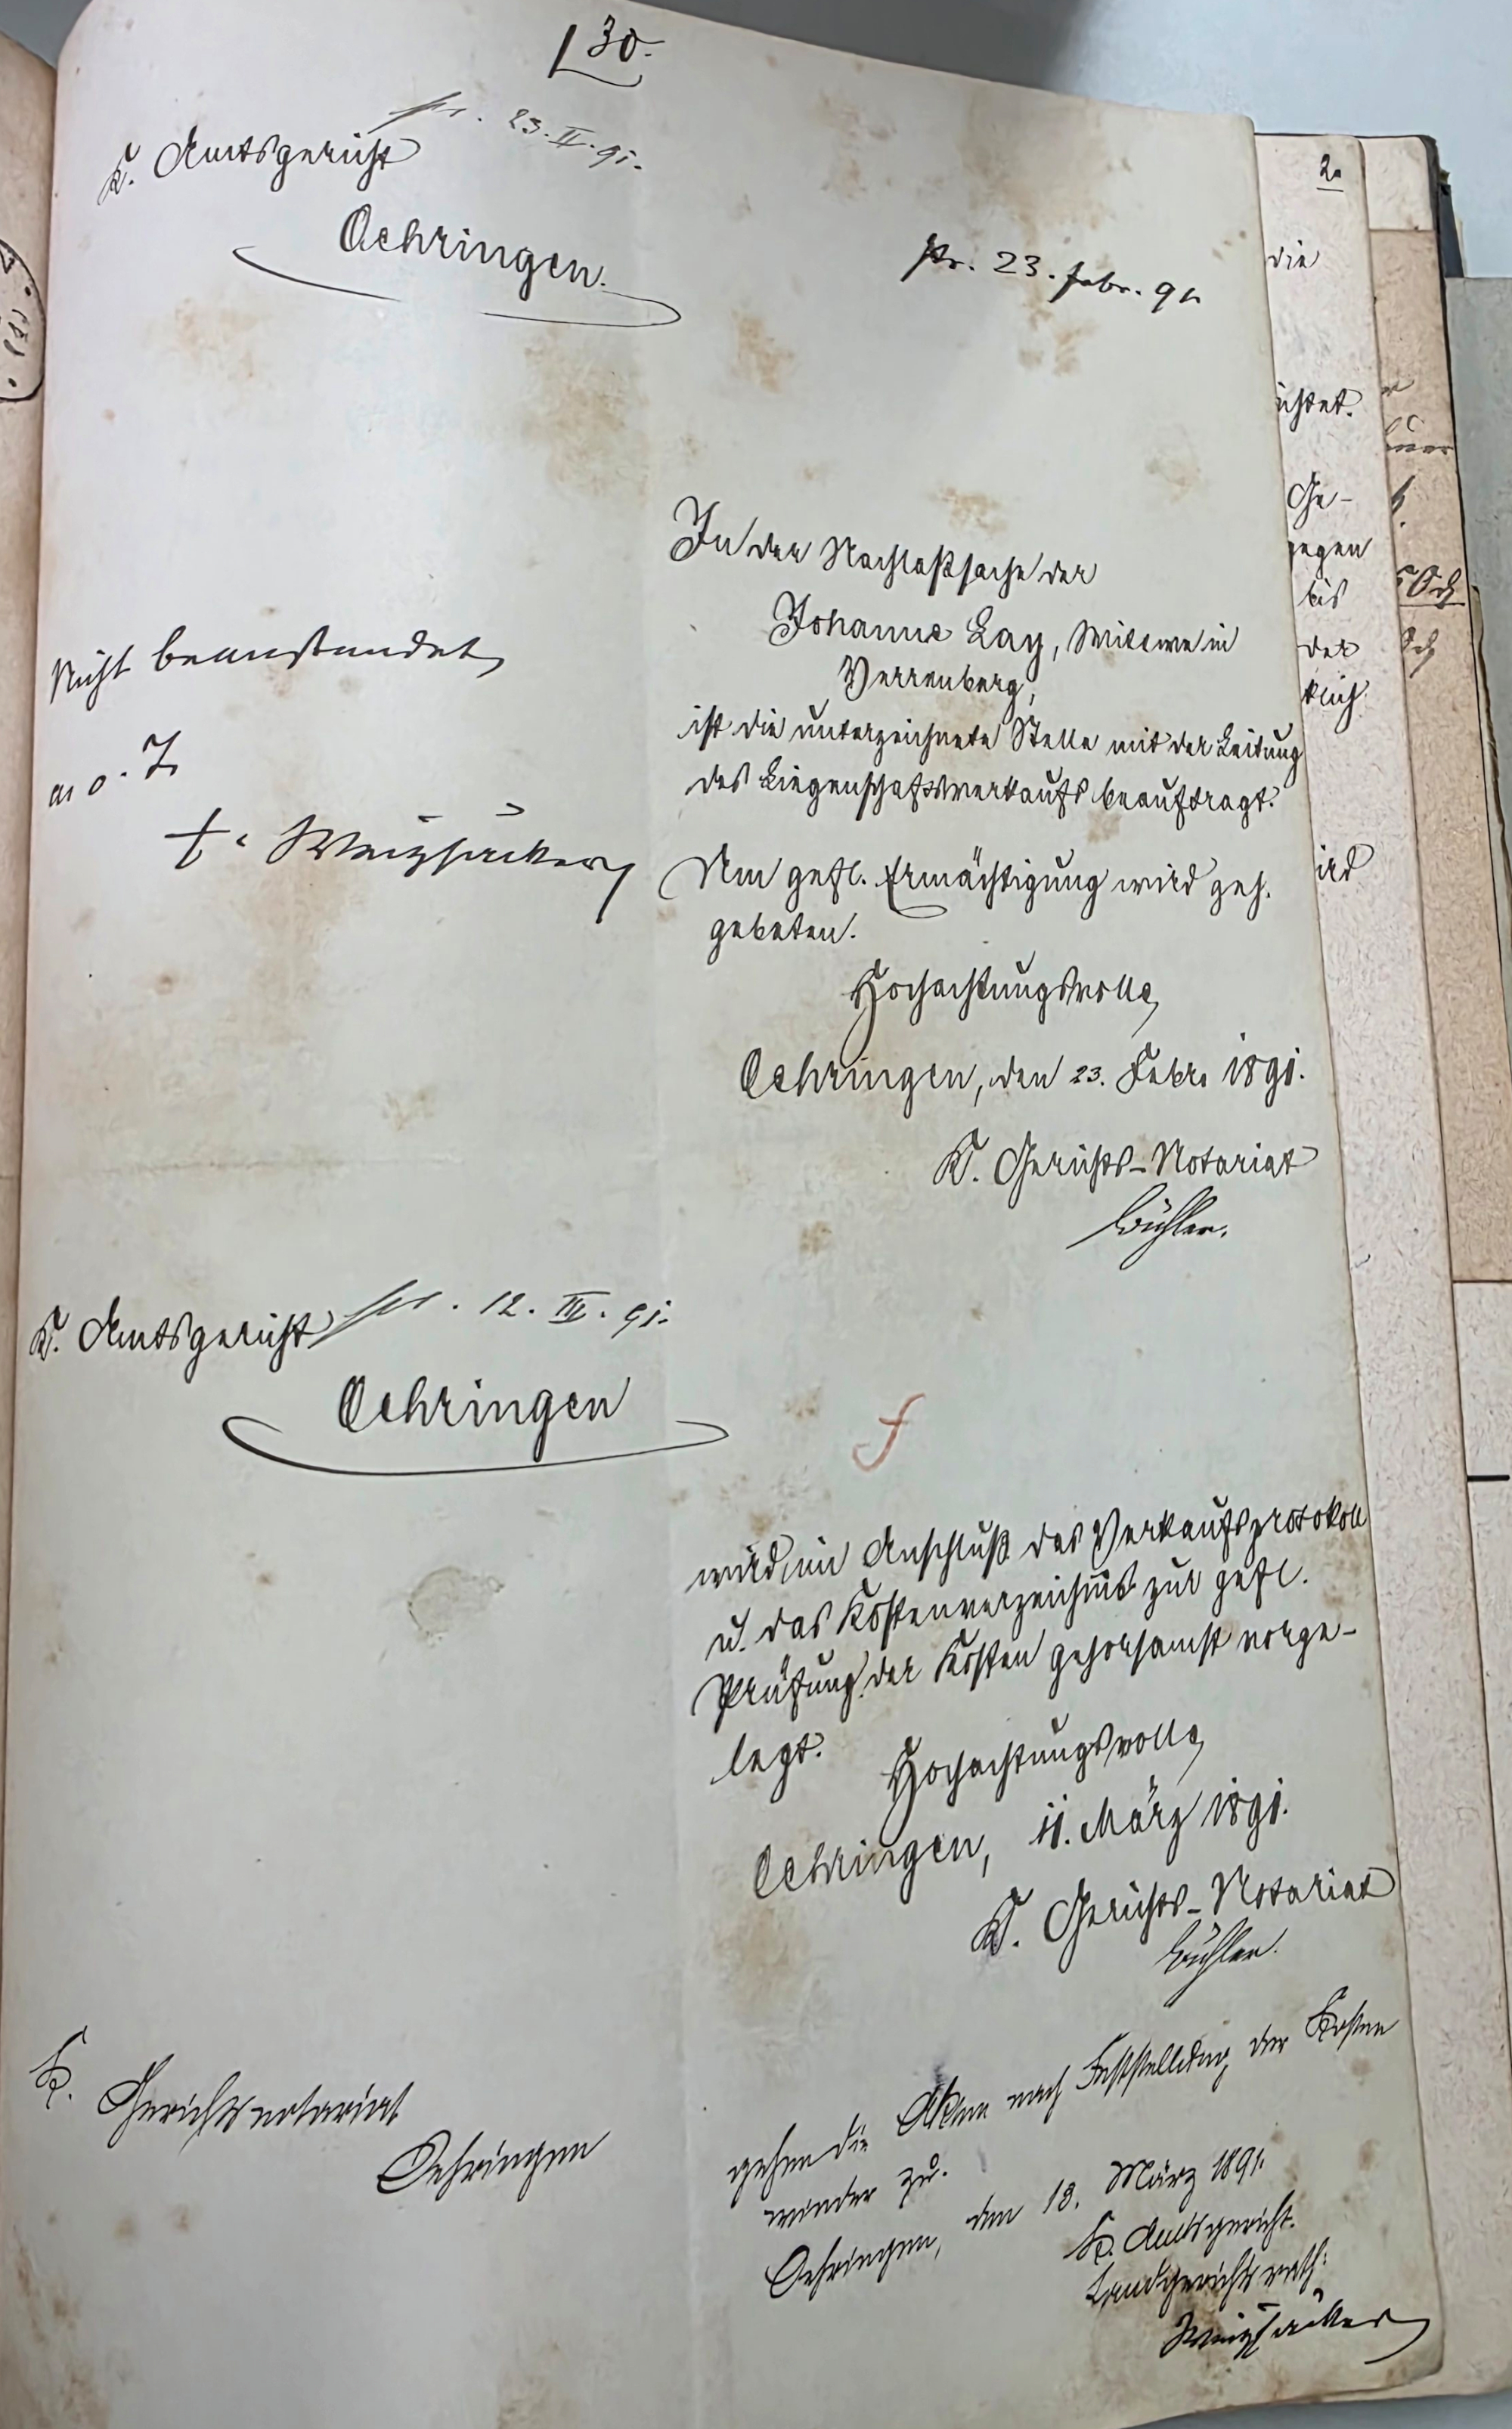 30.
pr. 23. II. 91.
K. Amtsgericht
Oehringen.
pr. 23. Febr. 91.
In der Nachlaßsache der
Johanne Lay, Wittwe in
Verrenberg,
ist die unterzeichnete Stelle mit der Leitung
des Liegenschaftsverkaufs beauftragt.
Um gefl. Ermächtigung wird geh.
gebeten.
Hochachtungsvoll
Oehringen, den 23. Febr. 1891.
K. Gerichts-Notariat
Bühler.
Nicht beanstandet
Weizsäcker
K. Amtsgericht
pr. 12. III. 91.
Oehringen
wird im Anschluß das Verkaufsprotokoll
u. das Kostenverzeichnis zur gefl.
Prüfung der Kosten gehorsamst vorge-
legt.
Hochachtungsvoll
Oehringen, 11. März 1891.
K. Gerichts-Notariat
Bühler.
K. Gerichtsnotariat
Oehringen
gehen die Akten nach Feststellung der Kosten
wieder zu.
Oehringen, den 13. März 1891.
K. Amtsgericht.
Landgerichtsrath:
Weizsäcker
2.
die
Ge-
gegen
bis
der